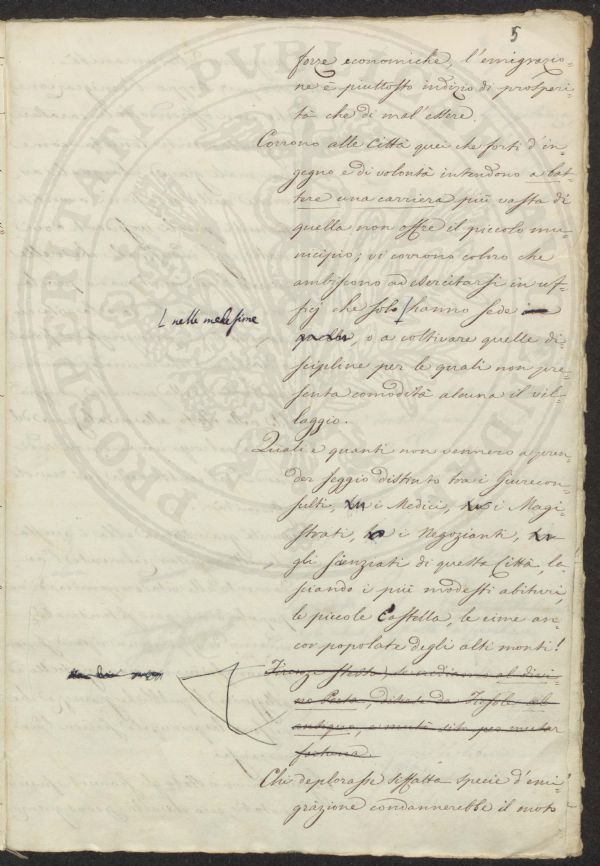 5
forze economiche, l'emigrazio-
ne è piuttosto indizio di prosperi-
tà che di mal'essere.
Corrono alle Città quei che forti d'in-
gegno e di volontà intendono a bat-
tere una carriera più vasta di
quella non offre il piccolo mu-
nicipio; vi corrono coloro che
ambiscono ad esercitarsi in uf-
ficj che solo hanno sede
nelle medesime
, o a coltivare quelle di-
scipline per le quali non pre-
senta comodità alcuna il vil-
laggio.
Quali e quanti non vennero a pren-
der seggio distinto tra i Giurecon-
sulti, i Medici, i Magi-
strati, i Negozianti,
gli scienziati di questa Città, la-
sciando i più modesti abituri,
le piccole Castella, le cime an-
cor popolate degli alti monti!
Firenze stessa, se crediamo al divi-
no Poeta, discese da Fiesole ab
antiquo, e mutò sito per mutar
fortuna.
Chi deplorasse siffatta specie d'emi-
grazione condannerebbe il moto
PROSPERITATI PVBLI